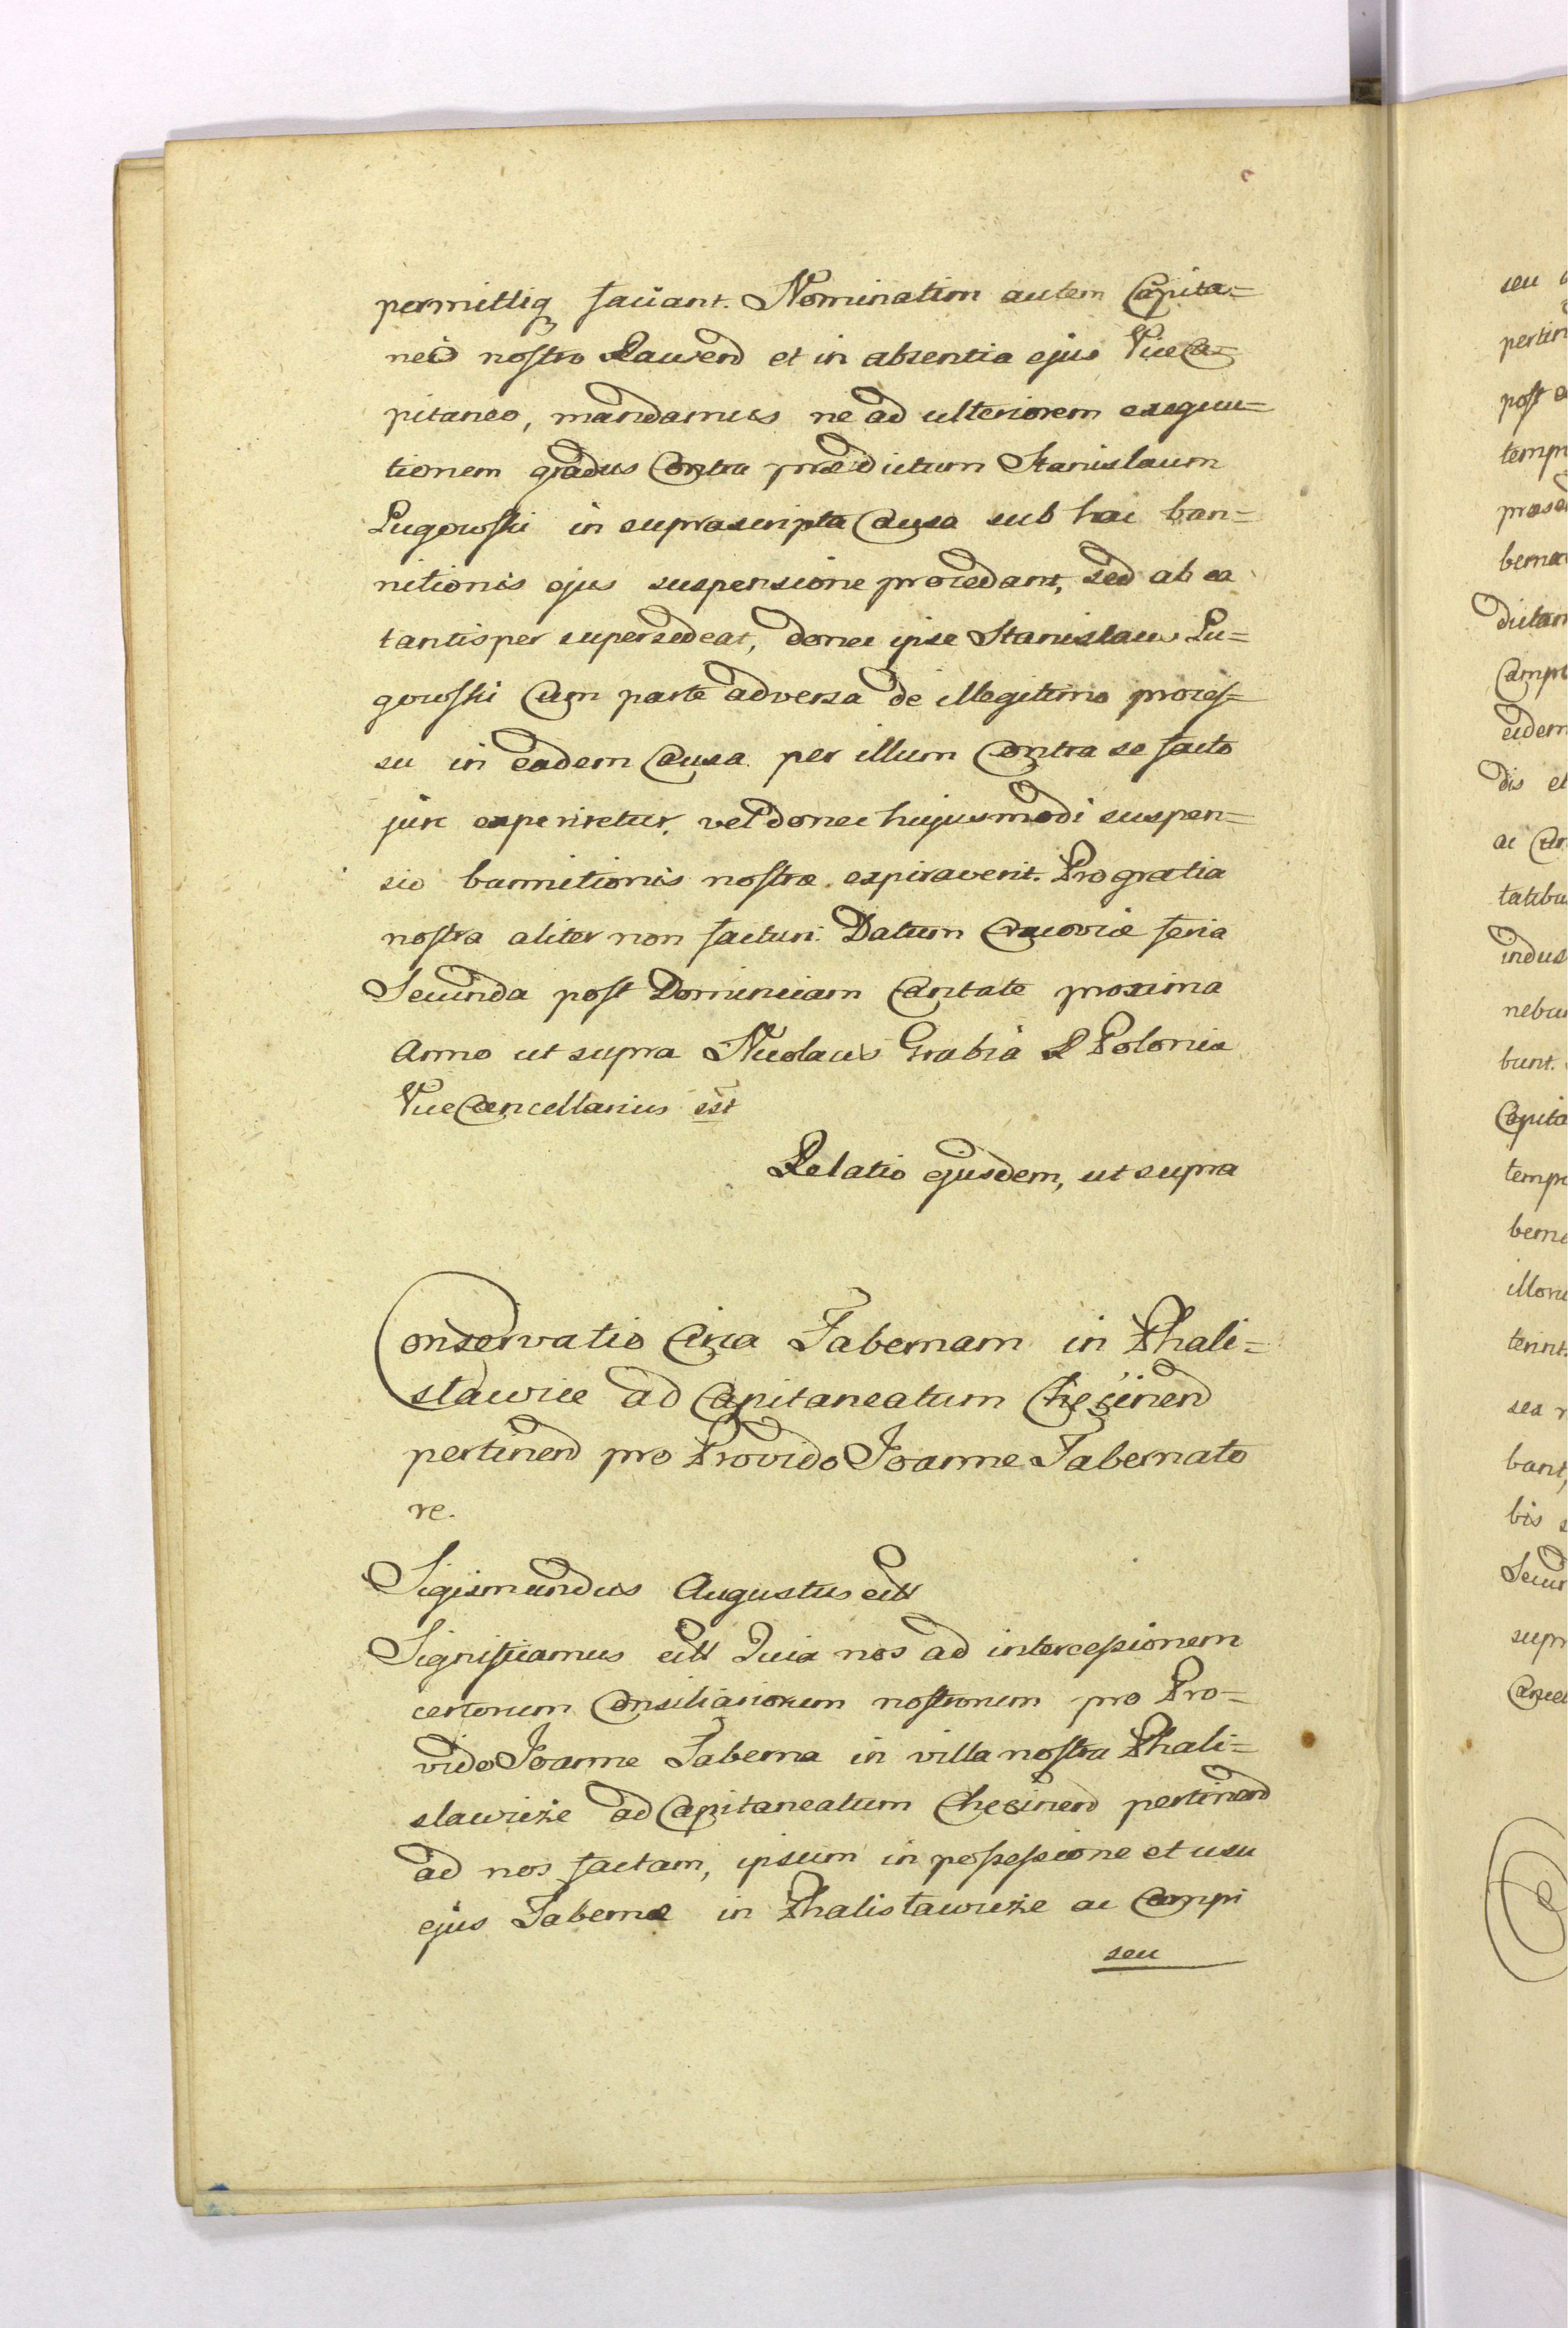 permittiq faciant. Nominatim autem Capita=
neo nostro Rawen et in absentia ejus ViceCa=
pitaneo, mandamus ne ad ulteriorem exequu=
tionem gradus Contra prædictum Stanislaum
Lugowski in suprascripta Causa sub hac ban=
nitionis ejus suspensione procedant, sed ab ea
tantisper supersedeat, donec ipse Stanislaus Lu=
gowski Cum parte adversa de illegitimo proces=
su in eadem Causa per illum Contra se facto
jure experiretur, vel donec hujusmodi suspen=
sio bannitionis nostræ expiraverit. Pro gratia
nostra aliter non facturi. Datum Cracoviæ feria
Secunda post Dominicam Cantate proxima
Anno ut supra Nicolaus Grabia R Polonia
ViceCancellarius sst
Relatio ejusdem, ut supra
Conservatio Circa Tabernam in Phali=
slawice ad Capitaneatum Chęcinen
pertinen pro Provido Joanne Tabernato
re.
Sigismundus Augustus ett
Significamus ett Quia nos ad intercessionem
certorum Consiliariorum nostrorum pro Pro=
vido Joanne Taberna in villa nostra Phali=
slawicze ad Capitaneatum Checinen pertinen
ad nos factam, ipsum in possessione et usu
ejus Tabernæ in Phalislawicze ac Campi
seu
seu
pertin
post
temp
præse
berna
dictam
Camp
eidem
dis et
ac
tatibu
indus
nebu
bunt.
Capita
temp
berna
illor
terint.
sea
bant,
bis
Secun
supr
Cancel